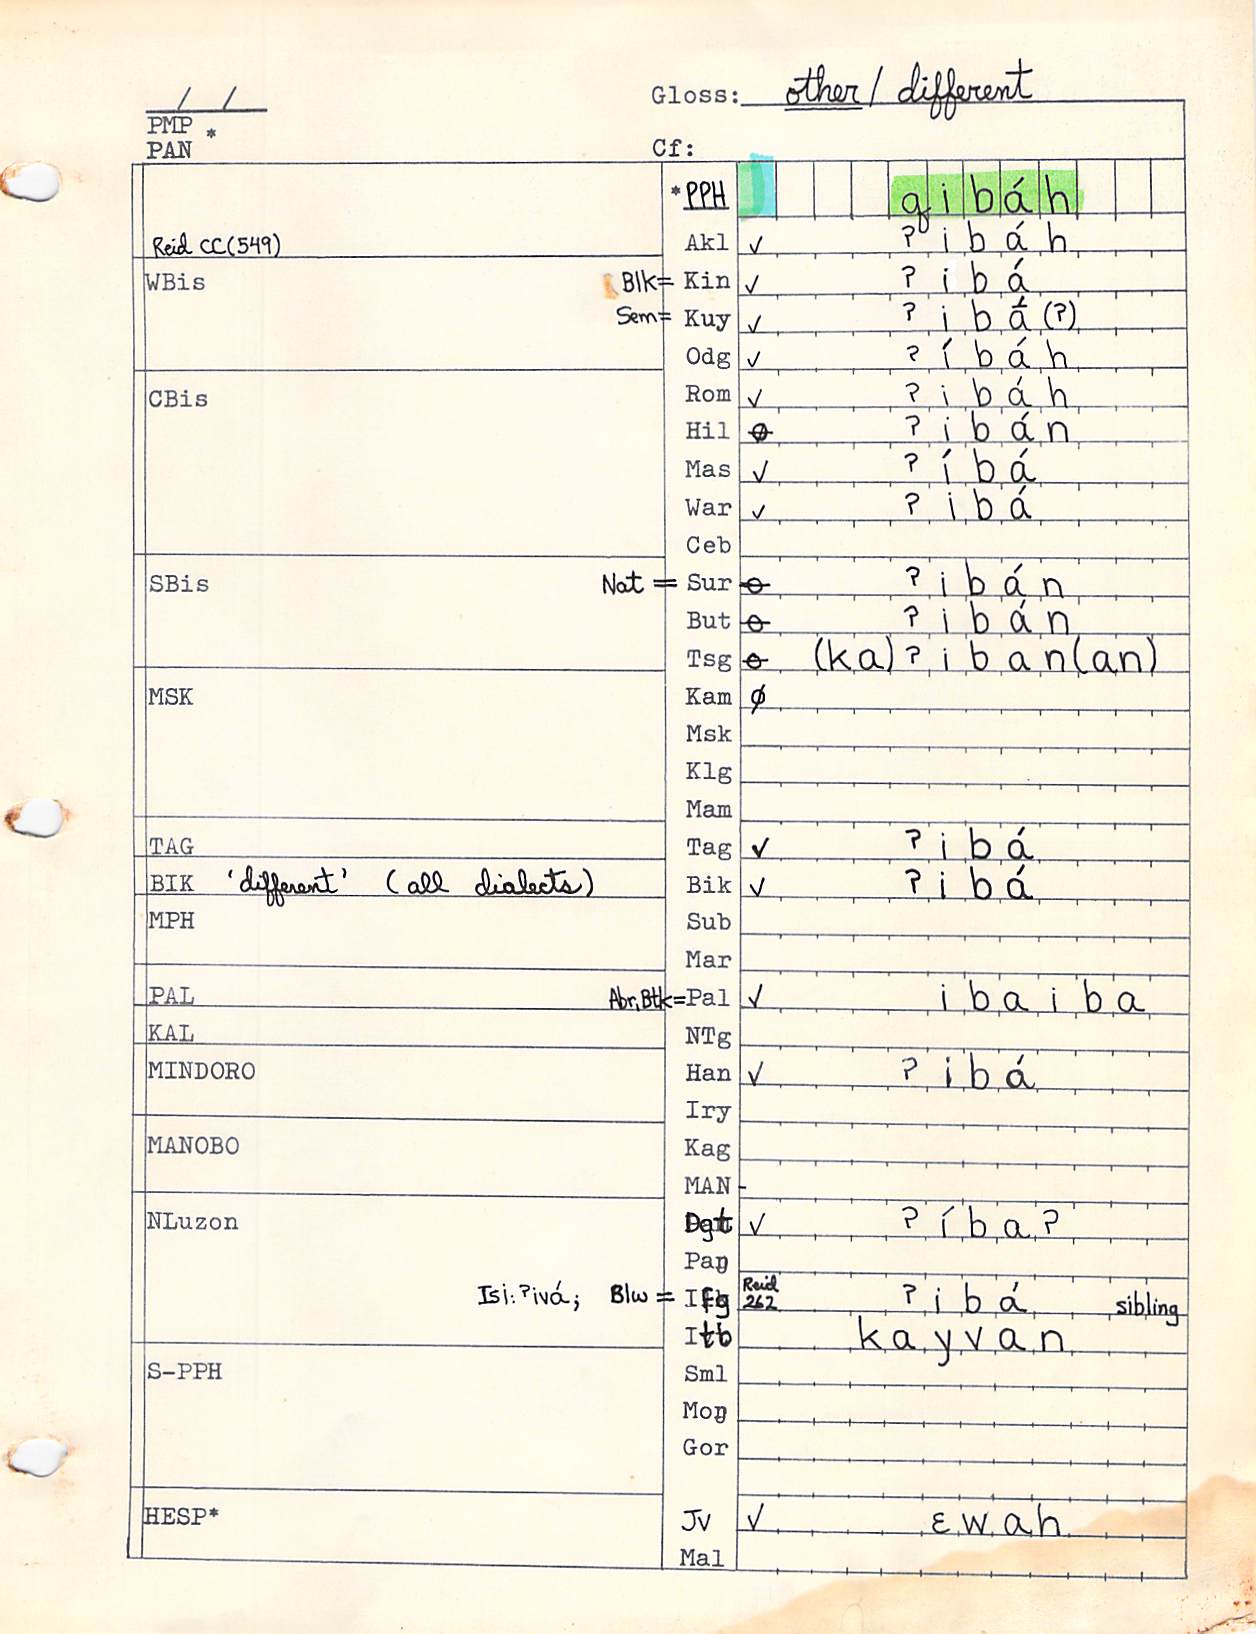 / /
Gloss: other / different
PMP *
PAN
Cf:
*PPH qibáh
Reid CC(549)
Akl ✓ ʔibáh
WBis Blk= Kin ✓ ʔibá
Sem= Kuy ✓ ʔibá(ʔ)
Odg ✓ ʔíbáh
CBis Rom ✓ ʔibáh
Hil ʔibán
Mas ✓ ʔíbá
War ✓ ʔibá
Ceb
SBis Nat = Sur ʔibán
But ʔibán
Tsg (ka)ʔiban(an)
MSK Kam ∅
Msk
Klg
Mam
TAG Tag ✓ ʔibá
BIK 'different' (all dialects) Bik ✓ ʔibá
MPH Sub
Mar
PAL Abr,Btk= Pal ✓ ibaiba
KAL NTg
MINDORO Han ✓ ʔibá
Iry
MANOBO Kag
MAN -
NLuzon Dgt ✓ ʔíbaʔ
Paŋ
Isi: ʔivá; Blw = Ifg Reid 262 ʔibá sibling
Itb kayvan
S-PPH Sml
Moŋ
Gor
HESP* Jv ✓ ɛwah
Mal